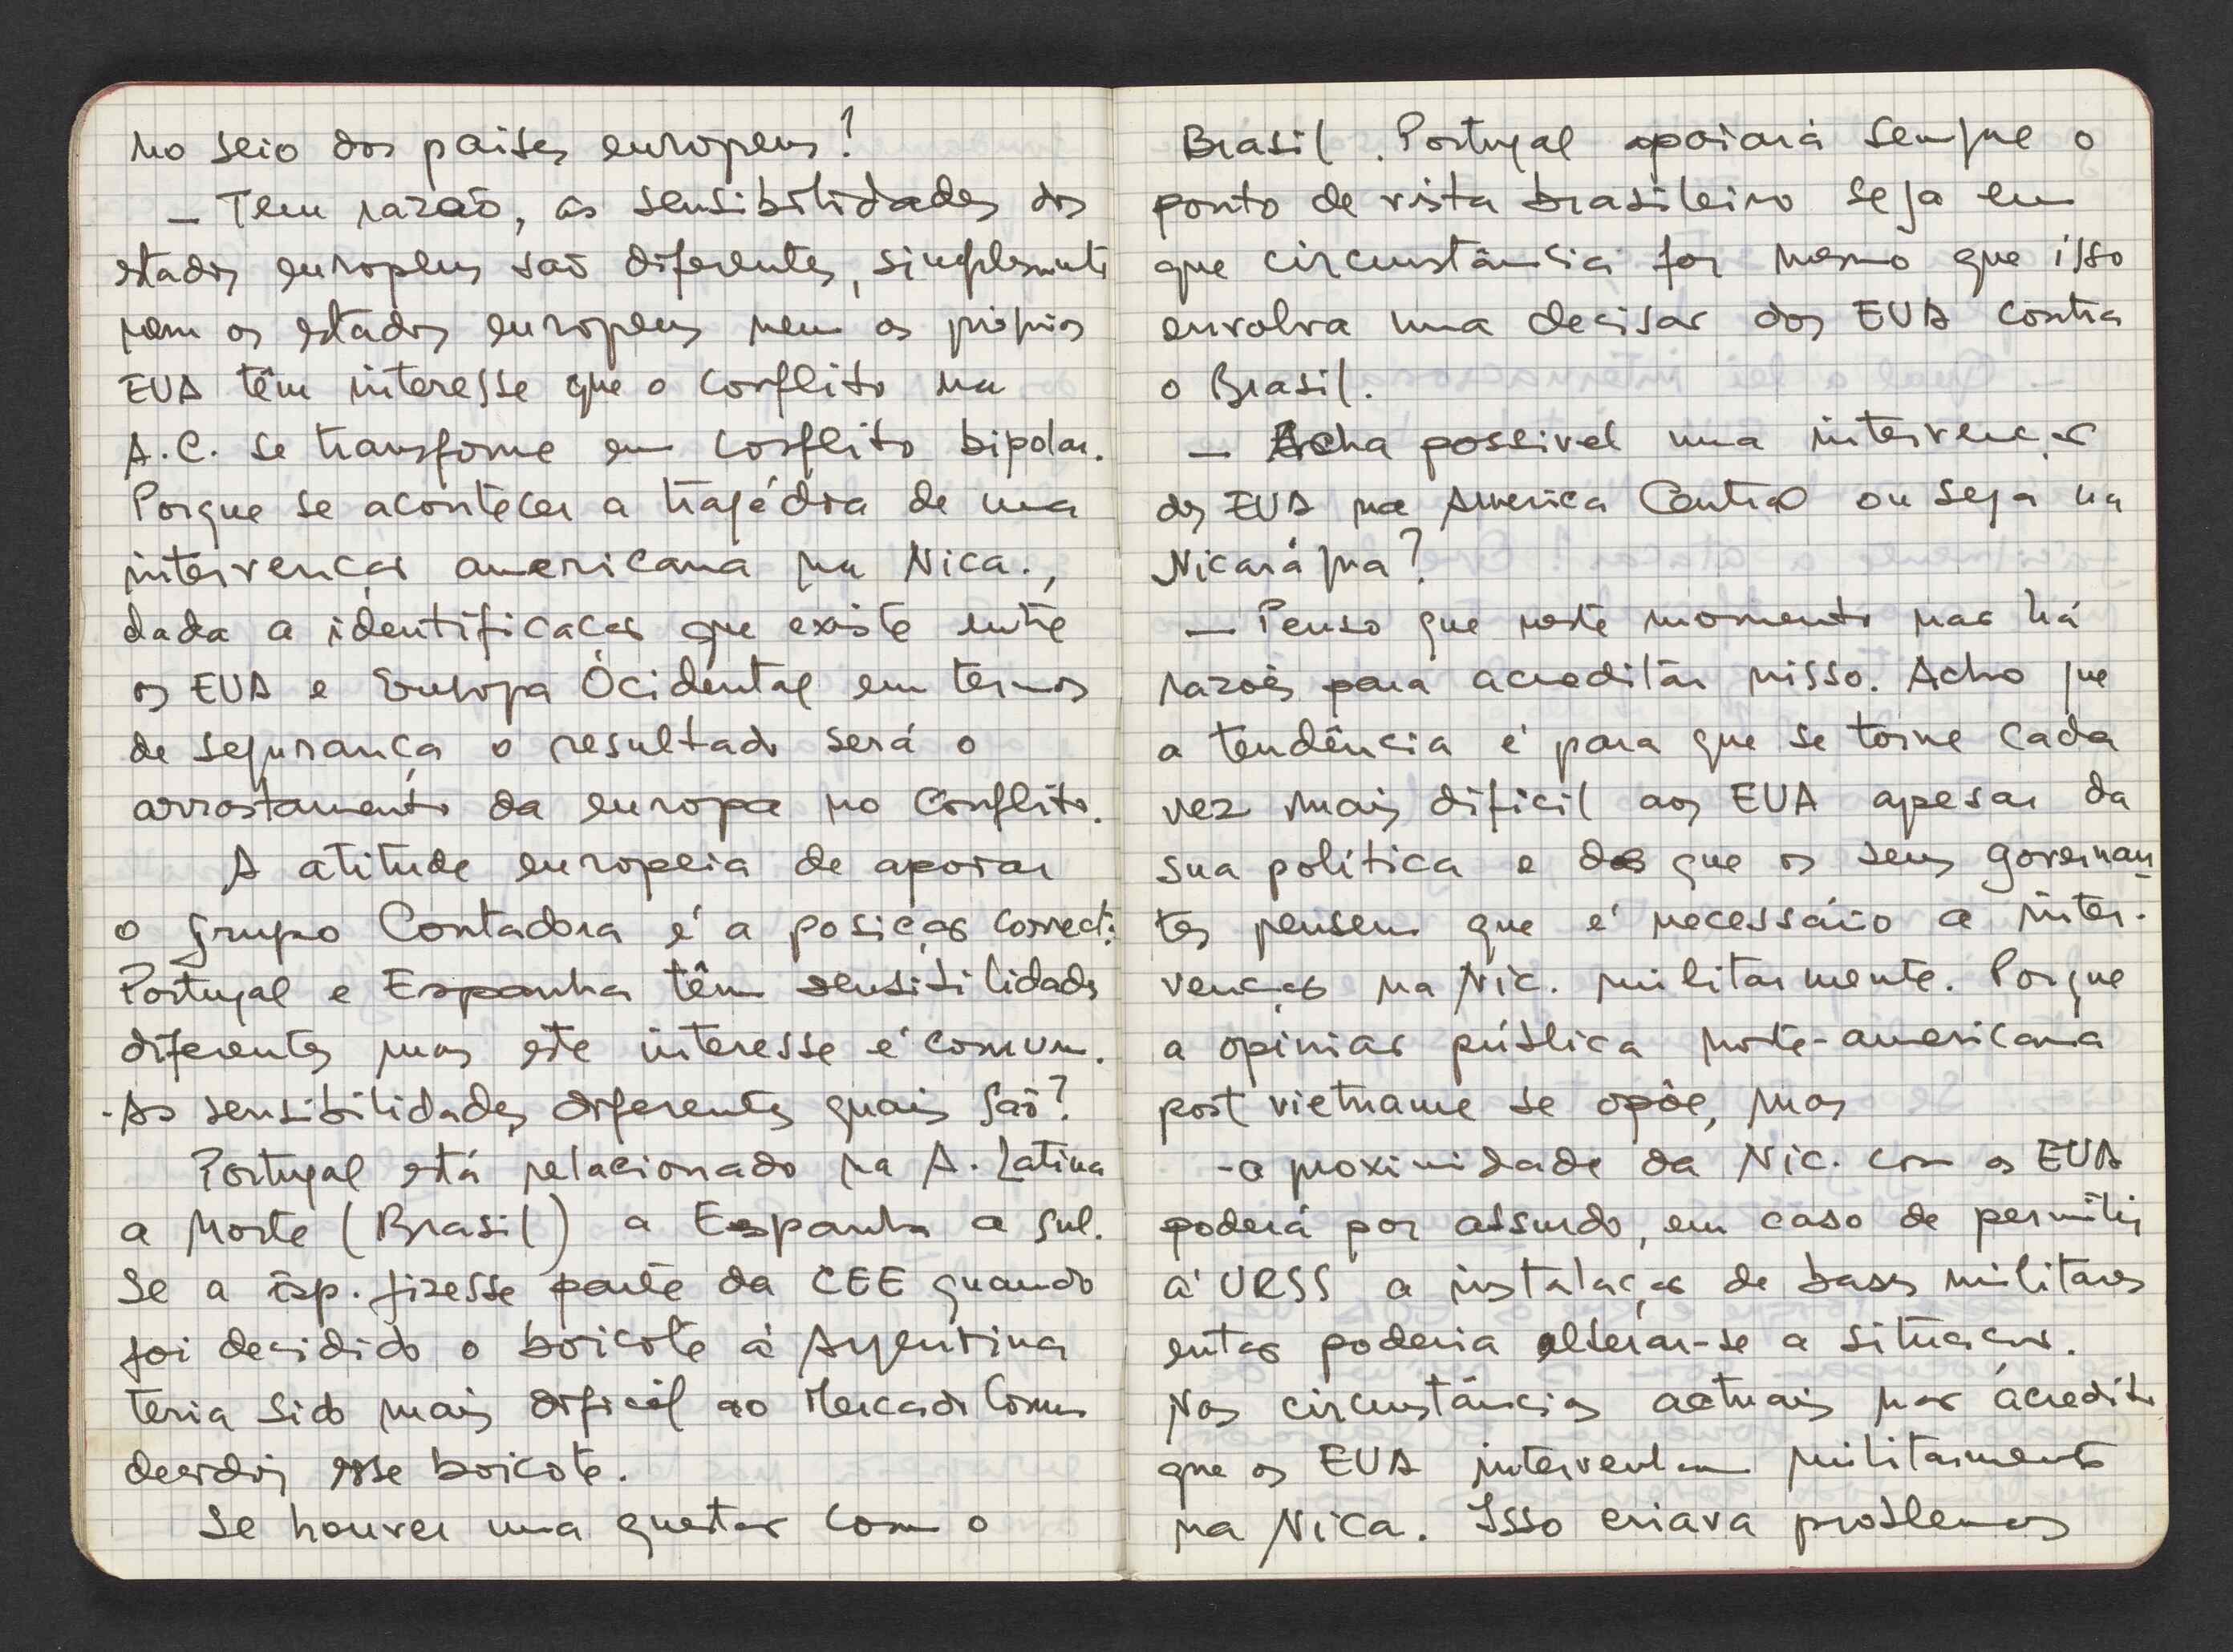 no seio dos países europeus?
— Tem razão, as sensibilidades dos
estados europeus são diferentes, simplesmente
nem os estados europeus nem os próprios
EUA têm interesse que o conflito na
A.C. se transforme em conflito bipolar.
Porque se acontecer a tragédia de uma
intervenção americana na Nica.,
dada a identificação que existe entre
os EUA e Europa Ocidental em termos
de segurança o resultado será o
arrostamento da europa no Conflito.
A atitude europeia de apoiar
o grupo Contadora é a posição correcta.
Portugal e Espanha têm sensibilidades
diferentes mas este interesse é comum.
- As sensibilidades diferentes quais são?
Portugal está relacionado na A. Latina
a Norte (Brasil) a Espanha a sul.
Se a Esp. fizesse parte da CEE quando
foi decidido o boicote à Argentina
teria sido mais difícil ao Mercado Comum
decidir esse boicote.
Se houver uma questão com o
Brasil. Portugal apoiará sempre o
ponto de vista brasileiro seja em
que circunstância for mesmo que isso
envolva uma decisão dos EUA contra
o Brasil.
— Acha possivel uma intervenção
dos EUA na America Central ou seja na
Nicarágua?
— Penso que neste momento não há
razões para acreditar nisso. Acho que
a tendência é para que se torne cada
vez mais dificil aos EUA apesar da
sua política e do que os seus governan-
tes pensem que é necessário a inter-
venção na Nic. militarmente. Porque
a opinião pública norte-americana
post vietname se opõe, mas
- a proximidade da Nic. com os EUA
poderá por absurdo, em caso de permitir
à URSS a instalação de bases militares
então poderia alterar-se a situação.
Nas circunstâncias actuais não acredito
que os EUA intervenham militarmente
na Nica. Isso criava problemas